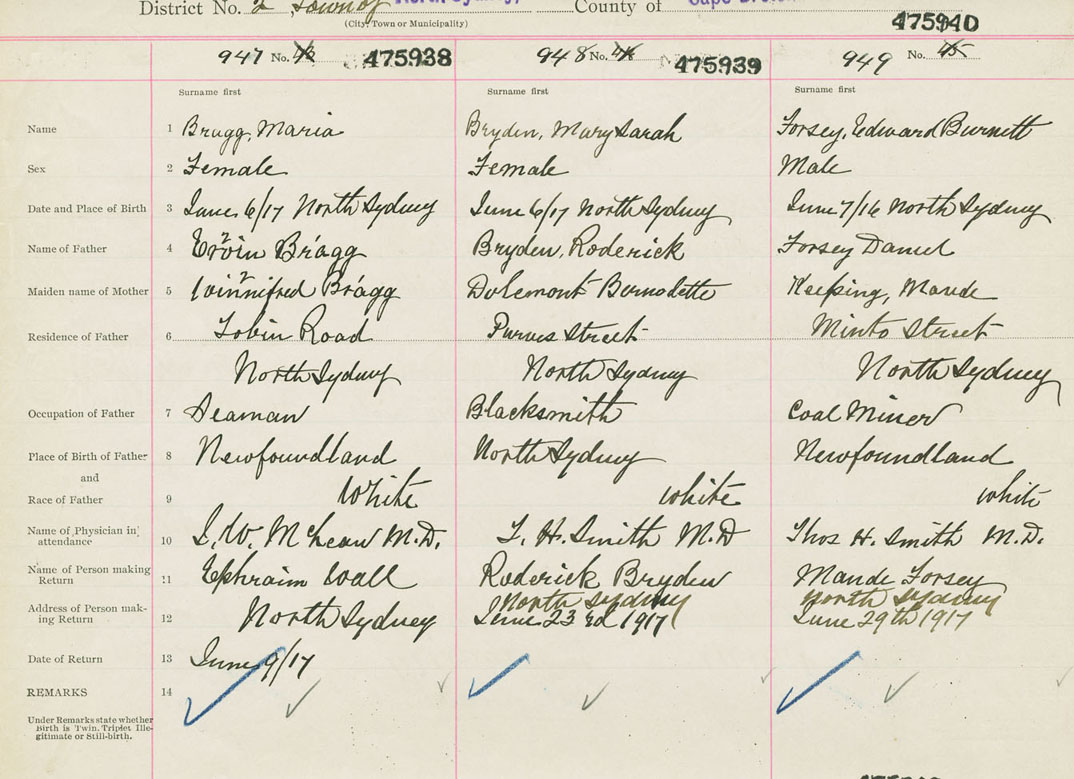 District No. 2, Town of North Sydney, County of Cape Breton
(City, Town or Municipality)
475940
947 No. 475938 948 No. 475939 949 No. 45
Surname first Surname first Surname first
Name 1 Bragg, Maria Bryden, Mary Sarah Forsey, Edward Burnett
Sex 2 Female Female Male
Date and Place of Birth 3 June 6/17 North Sydney June 6/17 North Sydney June 7/16 North Sydney
Name of Father 4 Bragg Bryden, Roderick Forsey Daniel
Maiden name of Mother 5 Winnifred Bragg Bernadette Keeping, Maude
Residence of Father 6 Tobin Road Purves Street Minto Street
North Sydney North Sydney North Sydney
Occupation of Father 7 Seaman Blacksmith Coal Miner
Place of Birth of Father 8 Newfoundland North Sydney Newfoundland
and
Race of Father 9 White White White
Name of Physician in attendance 10 M.D. T. H. Smith M.D Thos H. Smith M.D.
Name of Person making Return 11 Ephraim Wall Roderick Bryden Maude Forsey
Address of Person making Return 12 North Sydney North Sydney North Sydney
June 23rd 1917 June 29th 1917
Date of Return 13 June 9/17
REMARKS 14
Under Remarks state whether
Birth is Twin, Triplet Ille-
gitimate or Still-birth.